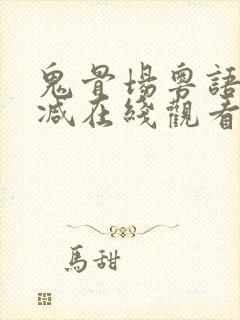 鬼骨場粵語
減在綫觀看
馬甜